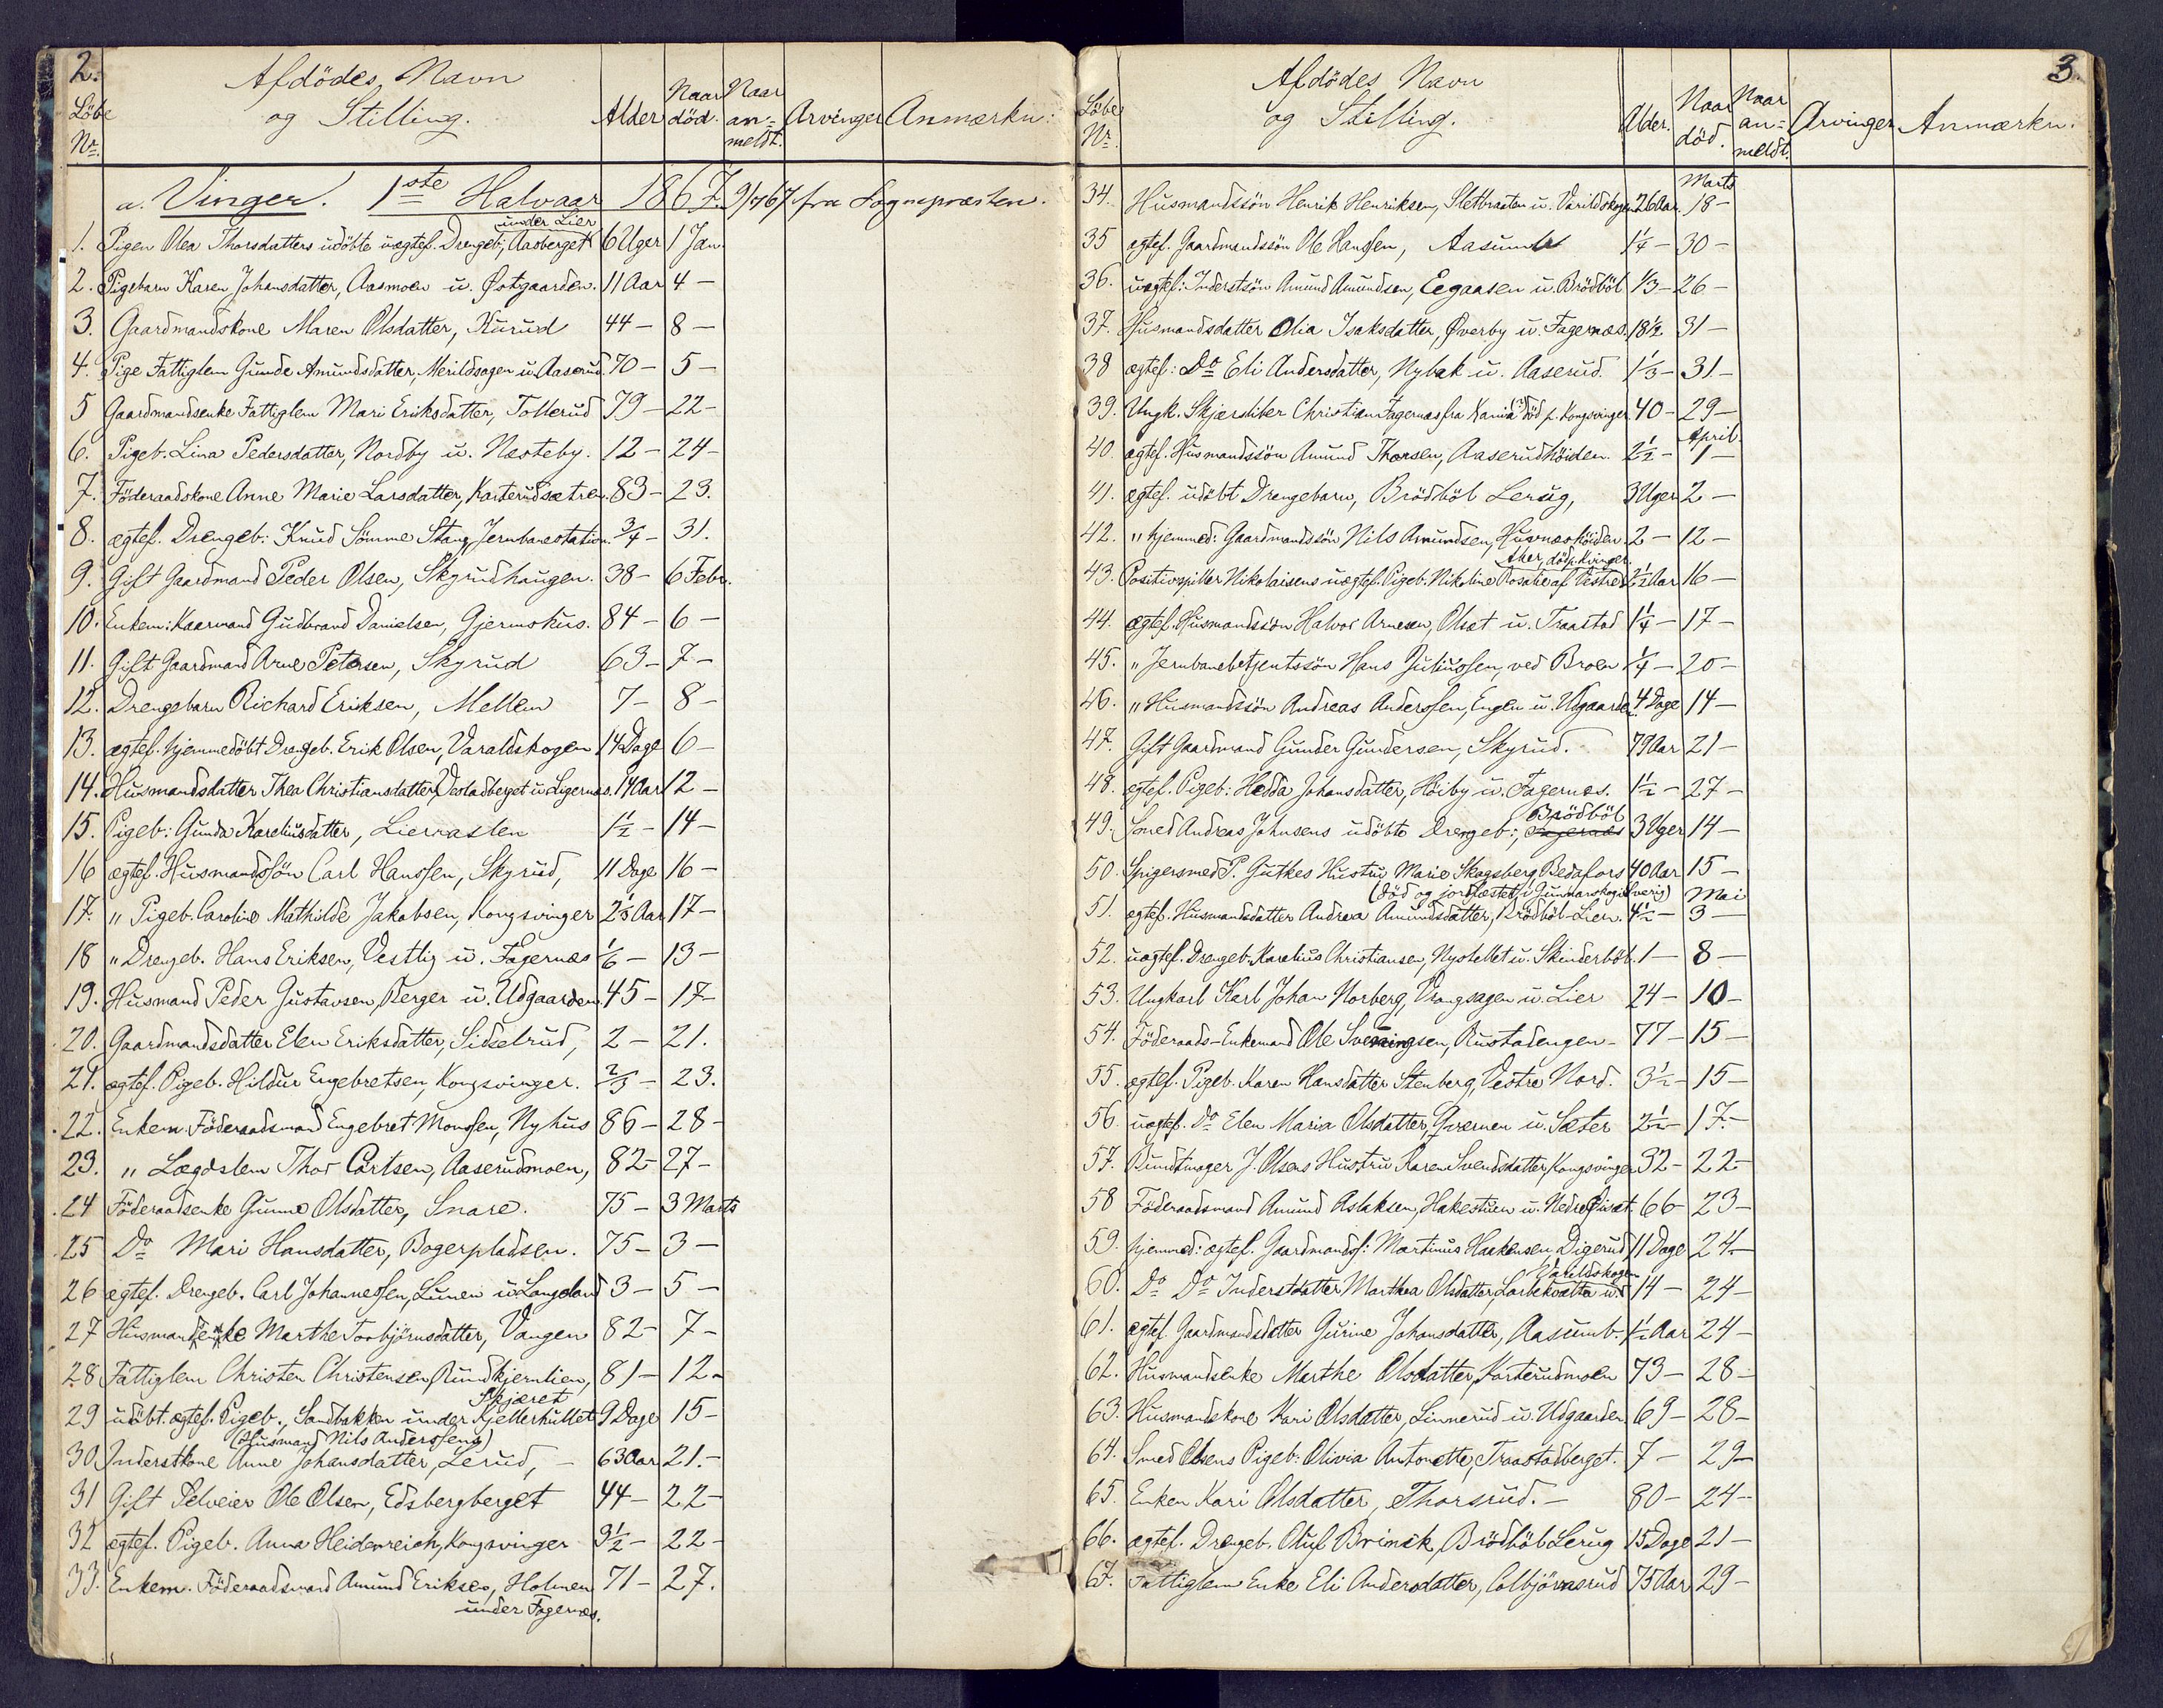 2.
Afdödes Navn
og Stilling.
Löbe
Nr.
Alder
Naar
död.
Naar
an=
meldt.
Arvinger
Anmærkn:
a. Vinger. 1ste Halvaar 1867. 9/7 67 fra Sognepresten.
under Lier
1. Pigen Olea Thorsdatters udöbte uægtef. Drengeb; Aasberget 6 Uger 1 Jan
2. Pigebarn Karen Johansdatter, Aasmoen u. Östgaarden. 11 Aar 4 -
3. Gaardmandskone Maren Olsdatter, Kurud 44 - 8 -
4. Pige Fattiglem Gunde Amundsdatter, Merildsagen u. Aaserud. 70 - 5 -
5 Gaardmandsenke Fattiglem Mari Eriksdatter, Tollerud 79 - 22 -
6. Pigeb. Lina Pedersdatter, Nordby u. Næsteby. 12 - 24 -
7. Föderaadskone Anne Marie Larsdatter, Karterudsætren. 83 - 23.
8. ægtef. Drengeb: Knud Sömme Stang, Jernbanestation. 3/4 - 31.
9. Gift Gaardmand Peder Olsen, Skyrudhaugen. 38 - 6 Febr.
10. Enkem: Kaarmand Gudbrand Danielsen, Gjermshus. 84 - 6 -
11. Gift Gaardmand Arne Petersen, Skyrud 63 - 7 -
12. Drengebarn Richard Eriksen, Mellem 7 - 8 -
13. ægtef. hjemmedöbt Drengeb. Erik Olsen, Varaldskogen 14 Dage 6 -
14. Husmandsdatter Thea Christiansdatter, Vestadberget u. Ligernæs. 14 Aar 12 -
15. Pigeb: Gunda Kareliusdatter, Liermasten 1 1/2 - 14 -
16 ægtef. Husmandssön Carl Hanssen, Skyrud, 11 Dage 16 -
17. " Pigeb. Caroline Mathilde Jakobsen, Kongsvinger 2 1/3 Aar 17 -
18 " Drengeb. Hans Eriksen, Vestlig u. Fagernæs 1/6 - 13 -
19. Husmand Peder Gustavsen, Berger u. Udgaarden. 45 - 17 -
20. Gaardmandsdatter Elen Eriksdatter, Sidselrud, 2 - 21.
21. ægtef. Pigeb. Hildur Engebretsen, Kongsvinger. 2/3 - 23.
22. Enkem. Föderaadsmand Engebret Monssen, Nyhus 86 - 28 -
23. " Lægdslem Thor Cortsen, Aaserudmoen, 82 - 27 -
24 Föderaadsenke Gunne Olsdatter, Snare. 75 - 3 Marts
25 Do Mari Hansdatter, Bogerpladsen. 75 - 3 -
26 ægtef. Drengeb. Carl Johannessen, Lunen u. Langeland 3 - 5 -
27 Husmandsenke Marthe Torbjörnsdatter, Vangen 82 - 7 -
28 Fattiglem Christen Christensen, Rundkjernlien, 81 - 12 -
Skjæret
29 udöbt. ægtef. Pigeb., Sandbakken under Kjellerhullet 9 Dage 15 -
(Husmand Nils Anderssens)
30 Inderstkone Anne Johansdatter, Lerud, - 63 Aar 21. -
31 Gift Selveier Ole Olsen, Edsbergberget 44 - 22 -
32 ægtef. Pigeb. Anna Heidenreich, Kongsvinger 3 1/2 - 22 -
33. Enkem. Föderaadsmand Amund Eriksen, Holmen 71 - 27.
under Fagernæs.
3.
Löbe
Nr.
Afdödes Navn
og Stilling.
Alder.
Naar
död.
Naar
an=
meldt.
Arvinger
Anmærkn.
Marts
34. Husmandssön Henrik Henriksen, Slettbraaten u. Varildskogen 26 Aar. 18 -
35 ægtef. Gaardmandssön Ole Hanssen, Aasumb 1 1/4 - 30 -
36. uægtef: Inderstsön Amund Amundsen, Eegaasen u. Brödböl 1/3 - 26 -
37. Husmandsdatter Olia Isaksdatter, Överby u. Fagernæs. 18 1/2 31 -
38 ægtef: Do Eli Andersdatter, Nybak u. Aaserud. 1 1/3 - 31 -
39. Ungk. Skjærsliber Christian Fagernæs fra död p. Kongsvinger 40 - 29 -
April
40. ægtef. Husmandssön Amund Thorsen, Aaserudhöiden. 2 1/2 - 1 -
41. ægtef. udöbt Drengebarn, Brödböl Lerug, 3 Uger 2 -
42. " hjemmed: Gaardmandssön Nils Amundsen, Huvnæshöiden. 2 - 12 -
Aker, död p. Kvinger.
43. Positivspiller Nikolaisens uægtef. Pigeb. Nikoline Rosalie af Vestre 2 1/2 Aar 16 -
44. ægtef. Husmandssön Halvor Arnesen, Olset u. Traastad 1 1/4 - 17 -
45. " Jernbanebetjentssön Hans Juliussen, ved Broen 1/4 - 20 -
46. " Husmandssön Andreas Anderssen, Engen u. Udgaarden 4 Dage 14 -
47. Gift Gaardmand Gunder Gundersen, Skyrud. 79 Aar 21 -
48. ægtef. Pigeb: Hedda Johansdatter, Höiby u. Fagernæs. 1 1/2 - 27 -
Brödböl
49. Smed Andreas Johnsens udöbte Drengeb:, Fagernæs 3 Uger 14 -
50. Spigersmed P. Gutkes Hustru Marie Skogsberg, Bedafors 40 Aar 15 -
(död og jordfæstet i Gunnarskog i Sverig) Mai
51. ægtef. Husmandsdatter Andrea Amundsdatter, Brödböl-Lien. 4 1/2 - 3 -
52. uægtef. Drengeb. Karelius Christiansen, Nystellet u. Skinderböl. 1 - 8 -
53. Ungkarl Karl Johan Norberg, Vrangsagen u. Lier 24 - 10 -
54. Föderaads-Enkemand Ole Svenningsen, Rustadengen - 77 - 15 -
55. ægtef. Pigeb. Karen Hansdatter Stenberg, Vestre Nord. 3 1/2 - 15 -
56 uægtef. Do Elen Maria Olsdatter, Qværnen u. Sæter 2 1/2 - 17 -
57. Bundtmager J. Olsens Hustru Karen Svendsdatter, Kongsvinger 32 - 22 -
58 Föderaadsmand Amund Aslaksen, Hakestuen u. Nedre Öiset. 66 - 23 -
59. hjemmed: ægtef. Gaardmandss: Martinus Haakensen, Digerud 11 Dage 24 -
Varildskogen
60. Do Do Inderstdatter Marthea Olsdatter, u. 14 - 24 -
61. ægtef. Gaardmandsdatter Gurine Johansdatter, Aasumb. 1 1/2 Aar 24 -
62. Husmandsenke Marthe Olsdatter, Karterudmoen 73 - 28 -
63. Husmandskone Kari Olsdatter, Linnerud u. Udgaarden 69 - 28 -
64. Smed Olsens Pigeb: Olivia Antonette, Traastadberget. 7 - 29 -
65. Enken Kari Olsdatter, Thorsrud. - 80 - 24 -
66. ægtef. Drengeb. Oluf Brinck, Brödböl Lerug 15 Dage 21 -
67. Fattiglem Enke Eli Andersdatter, Colbjörnsrud 75 Aar 29 -